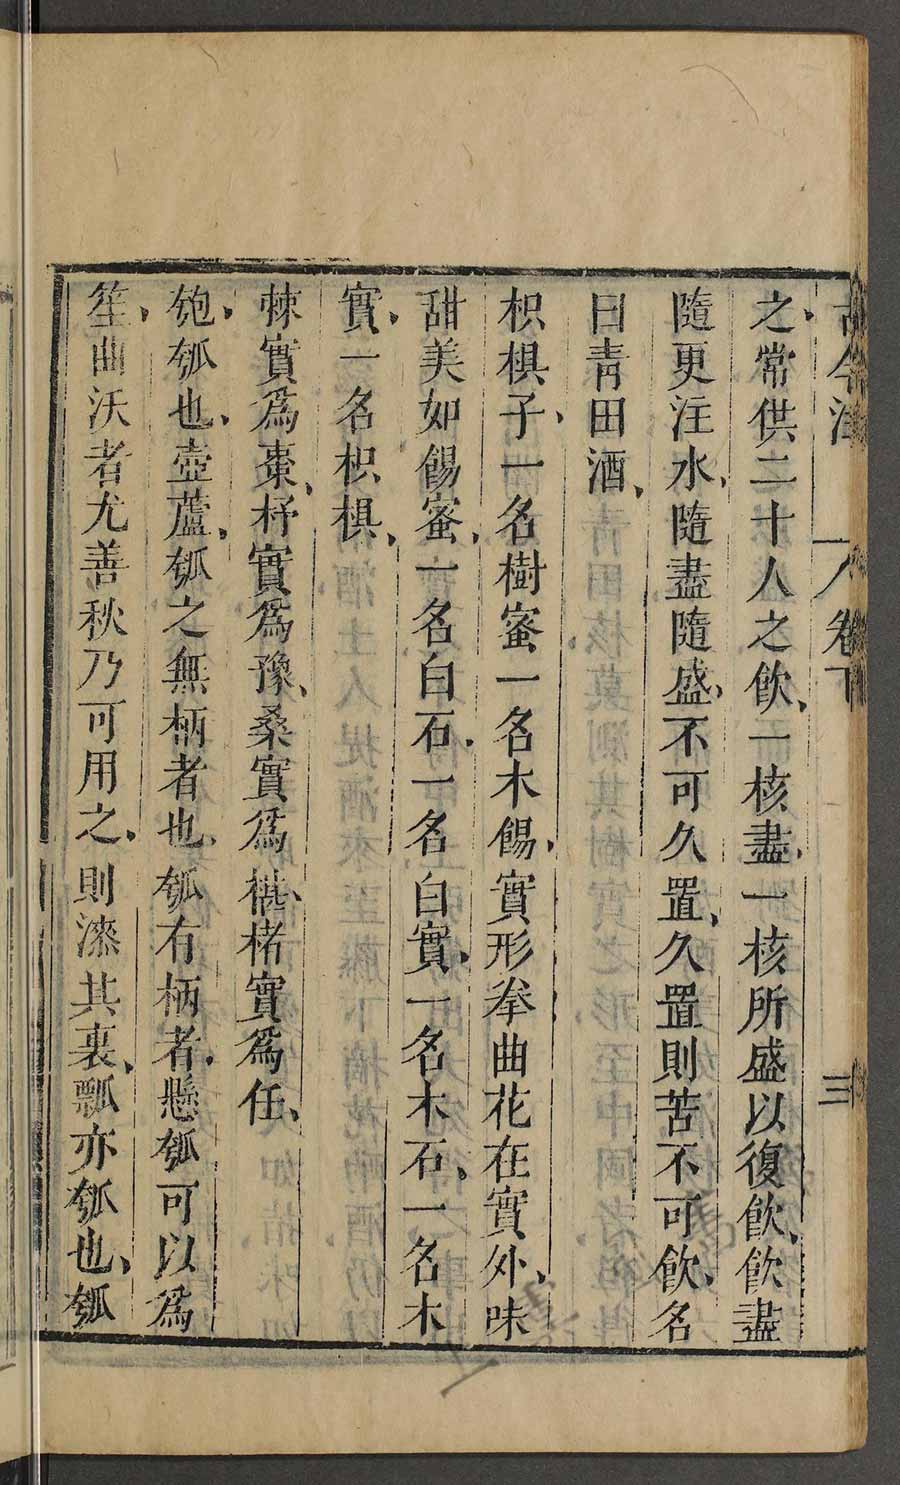 古今注 卷下 三
之常供二十人之飲一核盡一核所盛以復飲飲盡
隨更注水隨盡隨盛不可久置久置則苦不可飲名
曰青田酒
枳椇子一名樹蜜一名木餳實形拳曲花在實外味
甜美如餳蜜一名白石一名白實一名木石一名木
實一名枳椇
棘實為棗杼實為橡桑實為椹楮實為任
匏瓠也壺蘆瓠之無柄者也瓠有柄者懸瓠可以為
笙曲沃者尤善秋乃可用之則漆其裏瓢亦瓠也瓠